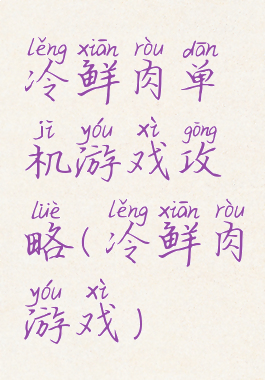 lěng xiān ròu dān
冷鲜肉单
jī yóu xì gōng
机游戏攻
lüè lěng xiān ròu
略(冷鲜肉
yóu xì
游戏)